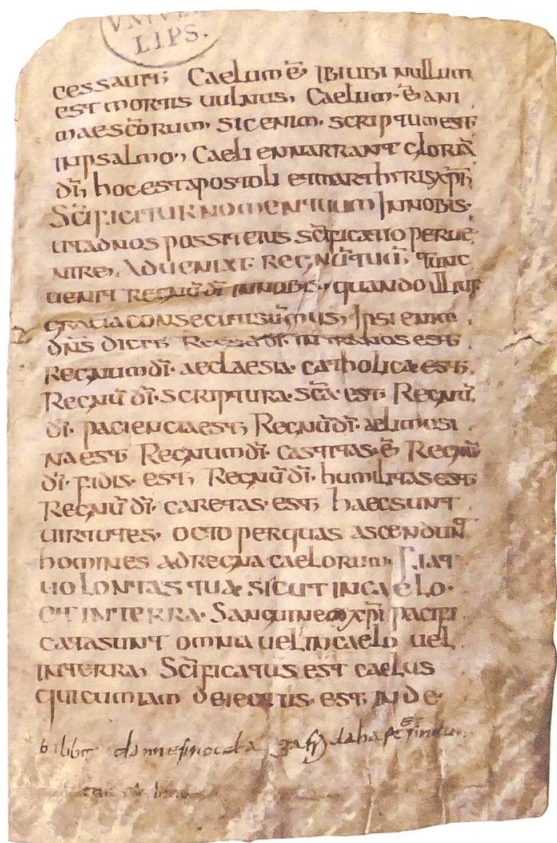 VNIVER
LIPS.
cessauit; Caelum ē, ibiubi nullum
est mortis uulnus, Caelum·ē·ani
maescōrum· sicenim· scriptumest·
inpsalmo·, Caeli ennarrant gloriā
dī, hoc estapostoli etmarthyrisxp̄i,
Scīficitur nomentuum Innobis·
utadnos possit eius scīficatio perue
nire, Adueniat· regnūtuū, tunc
uenit regnū dī innobis·, quando
gratia consecutisumus, Ipsi enim
dn̄s dicit, Regnū dī· intranos est·
Regnum dī· aeclaesia· catholica est·
Regnū dī· scriptura· scā est· Regnū
dī· pacienciaest, Regnū dī· aelimosi
naest· Regnum dī· castitas· ē· Regnū
dī· fidis· est, Regnū dī· humilitas est
Regnū dī· caretas· est, haecsunt
uirtutes· octo perquas ascendunt
homines adregna caelorum· Fiat
uolontas tua sicut incaelo·
et interra· Sanguine xp̄i pacifi
catasunt omnia uel incaelo uel
interra, Scīficatus est caelus
quicumiam deiectus· est, inde·